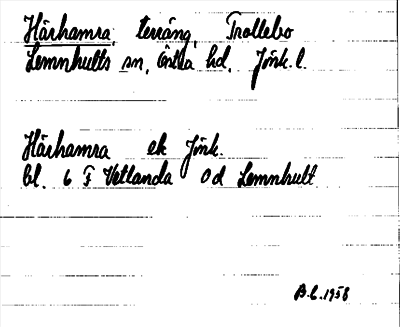 Hårhamra, terräng, Trollebo
Lemnhults sn, Östra hd, Jönk. l.
Hårhamra ek Jönk.
bl. 6 F Vetlanda 0d Lemnhult
B.L. 1958